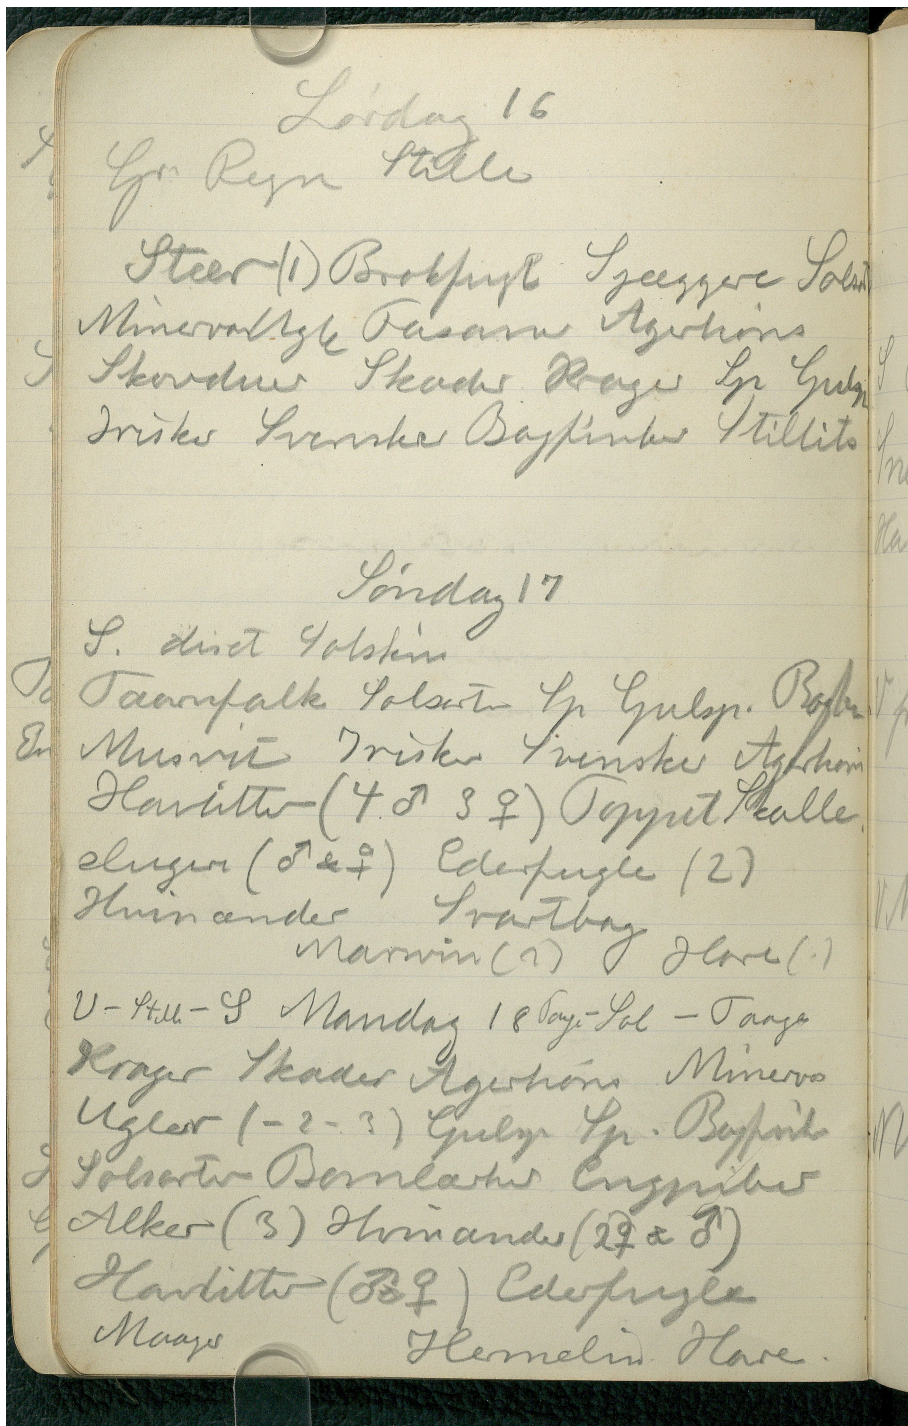 Lördag 16
Gr. Regn Stille
Stær (1) Brokfugl Sjæggere Solsort
Minervaugle Fasaner Agerhöns
Skovduer Skader Krager Sp Gulsp
Irisker Svenskere Bogfinker Stillits
Söndag 17
S. diset Solskin
Taarnfalk Solsorter Sp Gulsp. Bogfin
Musvit Irisker Svensker Agerhöns
Havlitter (4 ♂ 3 ♀) Toppet Skalle
sluger (♂ & ♀) Ederfugle (2)
Hvinænder Svartbag
Marsvin (2) Hare (1)
V - Still - S Mandag 18 Taage - Sol - Taage
Krager Skader Agerhöns Minerva
Ugler (-2-3) Gulsp Sp. Bogfink
Solsorter Bomlærker Engpiber
Alker (3) Hvinænder (2♀ & ♂)
Havlitter (♂3♀) Ederfugle
Maager Hermelin Hare.